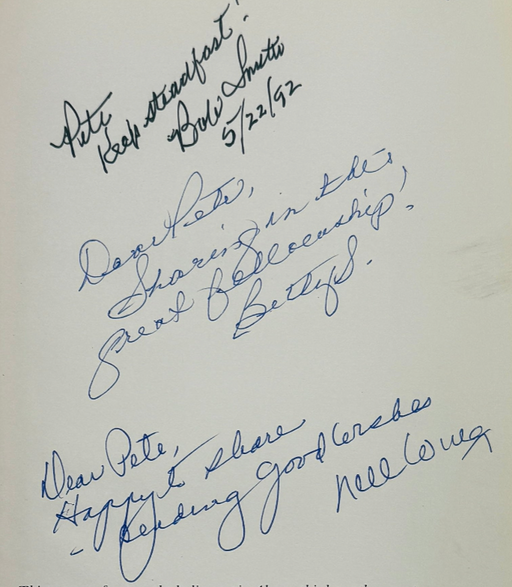 Pete
Keep steadfast!
Bob Smith
5/22/92
Dear Pete,
Sharing in this
great fellowship!
Betty S.
Dear Pete,
Happy to share
- Sending Good Wishes
Nell Wing